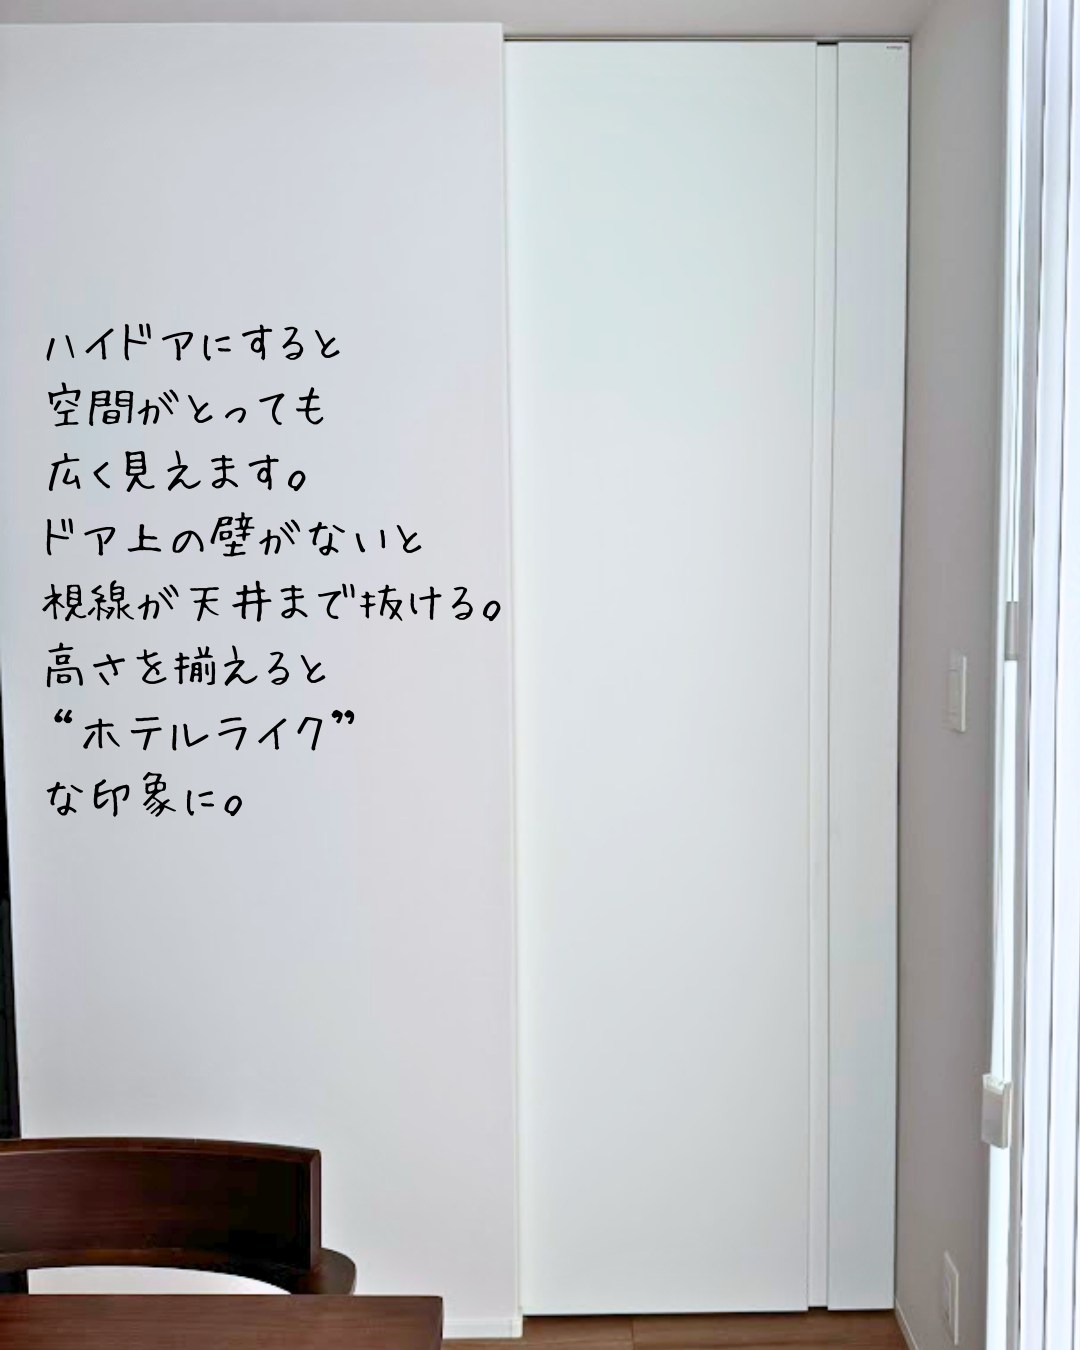 ハイドアにすると
空間がとっても
広く見えます。
ドア上の壁がないと
視線が天井まで抜ける。
高さを揃えると
“ホテルライク”
な印象に。